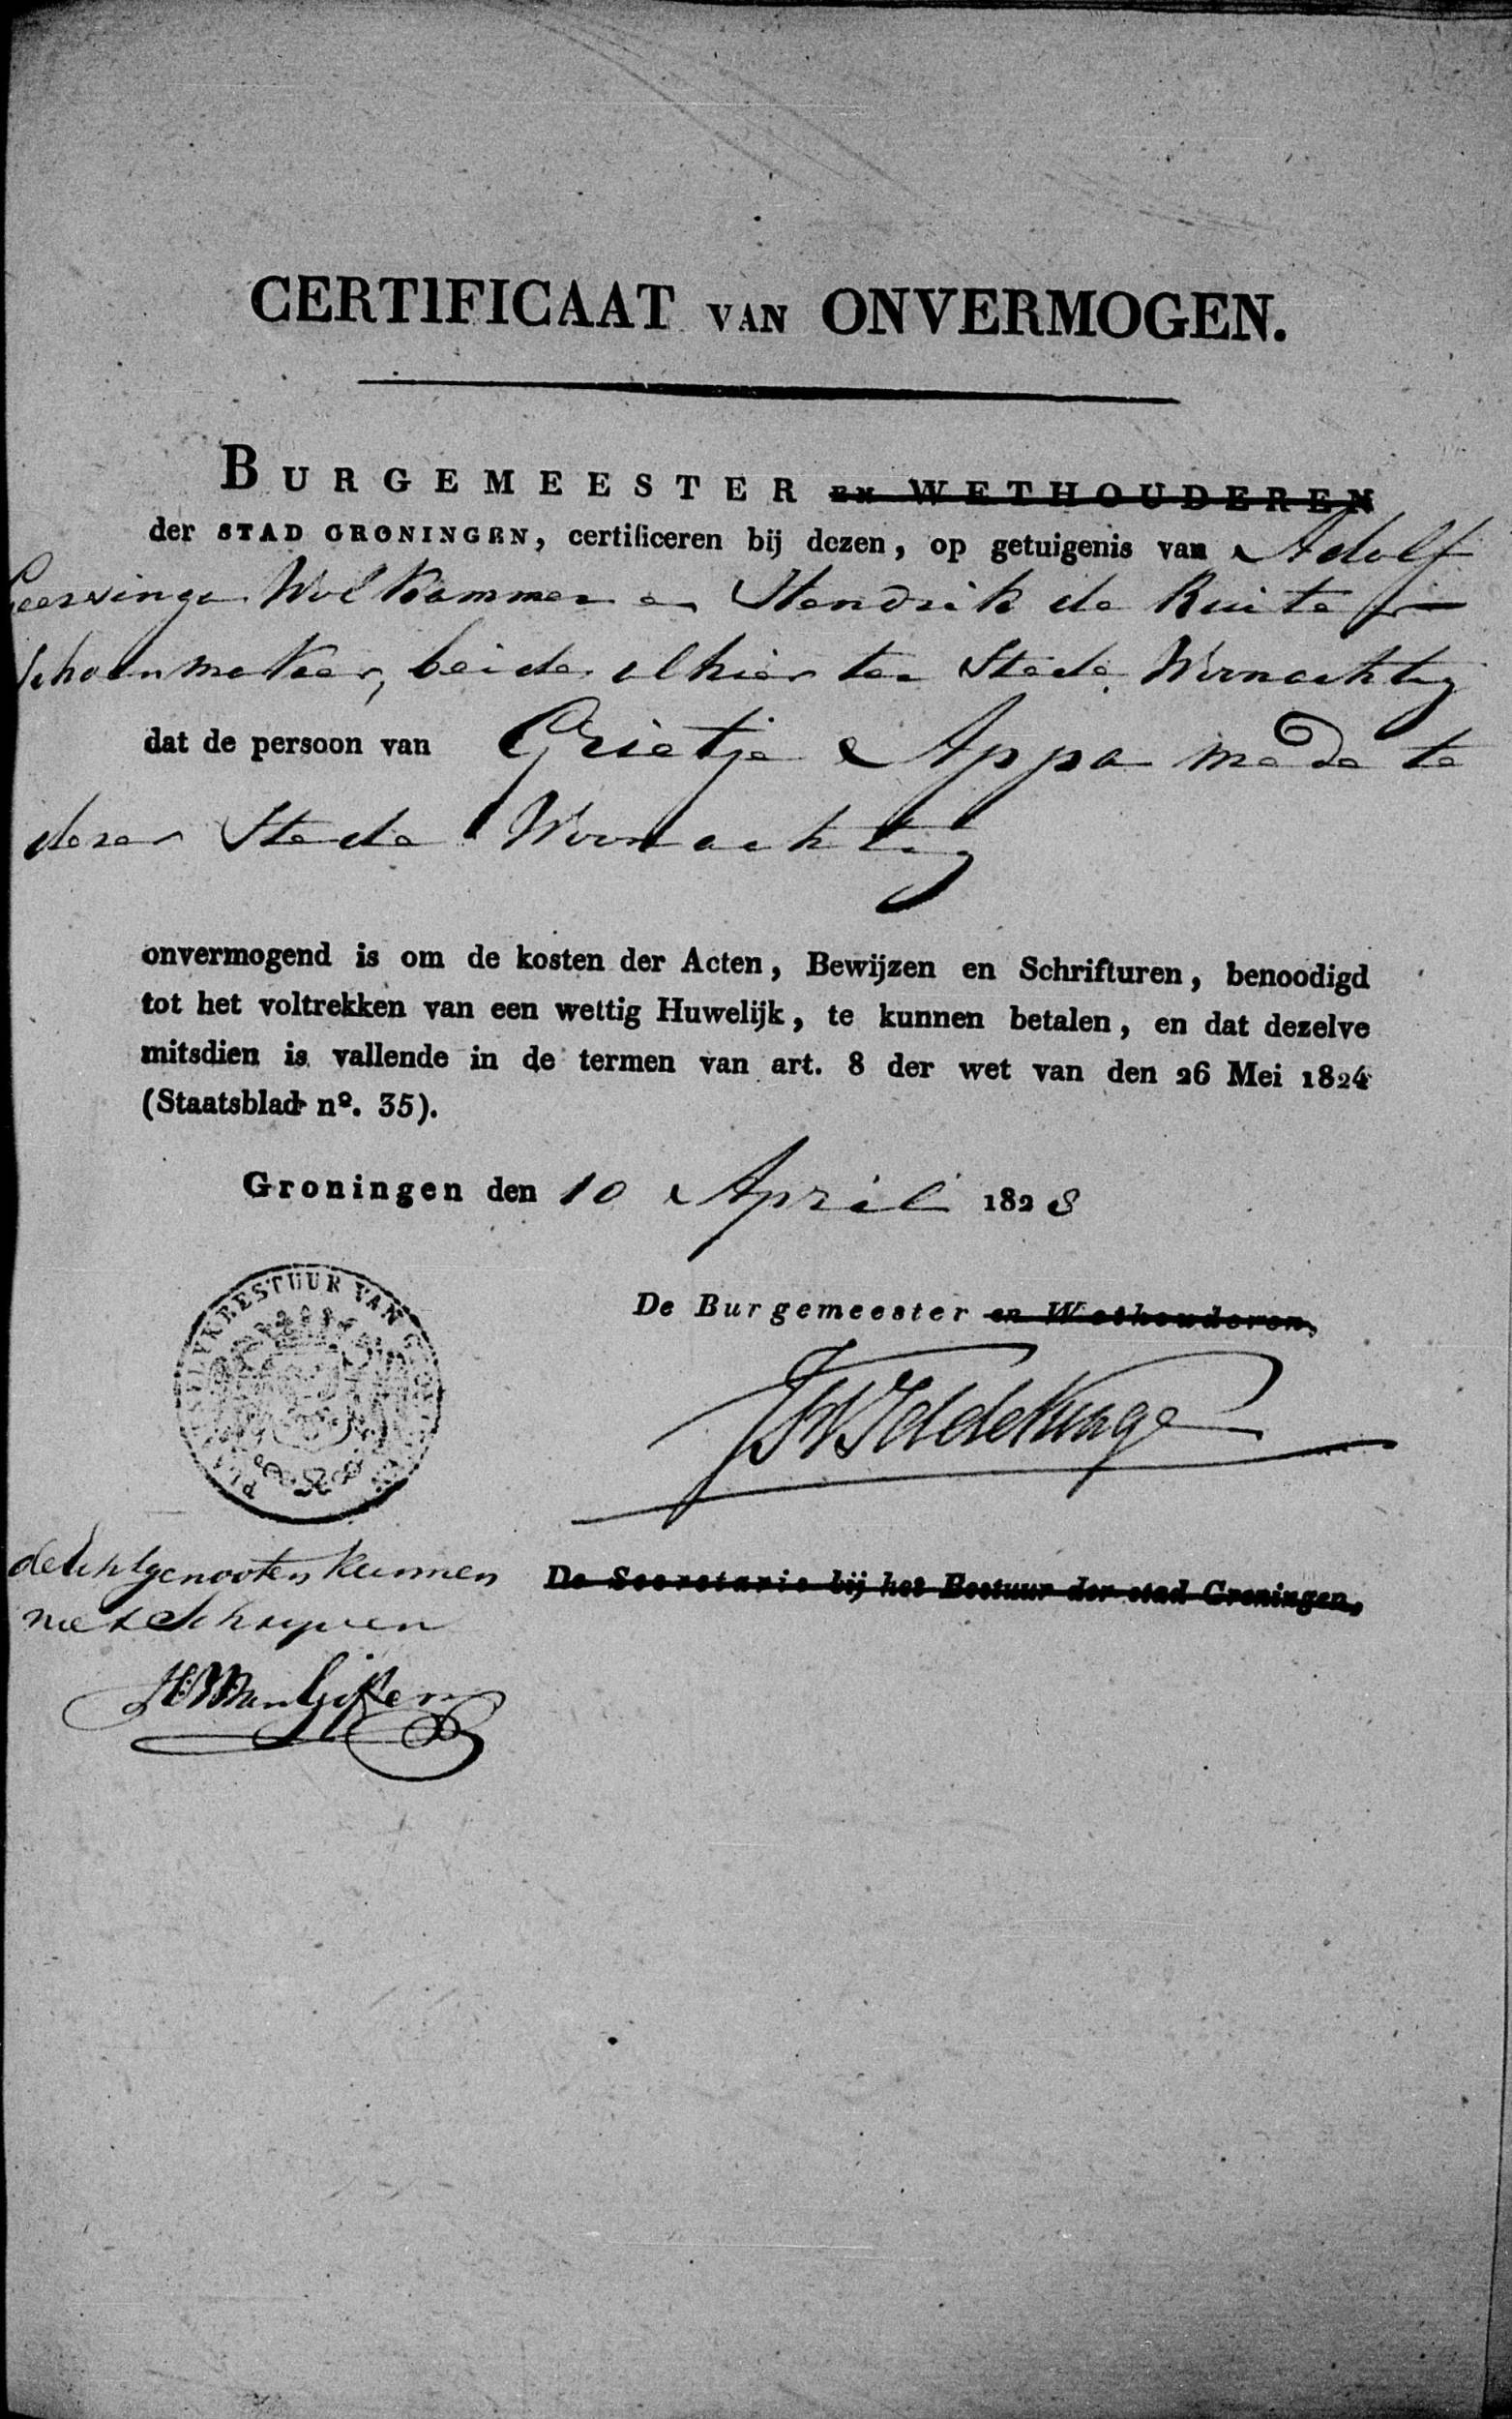 CERTIFICAAT VAN ONVERMOGEN.
BURGEMEESTER EN WETHOUDEREN
der STAD GRONINGEN, certificeren bij dezen, op getuigenis van Adolf
Wolkammer en Hendrik de Ruiter
Schoenmaker, beide alhier ter Stede Woonachtig
dat de persoon van Grietje Appa mede te
dezer Stede Woonachtig
onvermogend is om de kosten der Acten, Bewijzen en Schrifturen, benoodigd
tot het voltrekken van een wettig Huwelijk, te kunnen betalen, en dat dezelve
mitsdien is vallende in de termen van art. 8 der wet van den 26 Mei 1824
(Staatsblad nº. 35).
Groningen den 10 April 1828
De Burgemeester en Wethouderen,
BESTUUR VAN
Iddekinge
de Echtgenooten kunnen
niet Schryven
De Secretaris bij het Bestuur der stad Groningen,